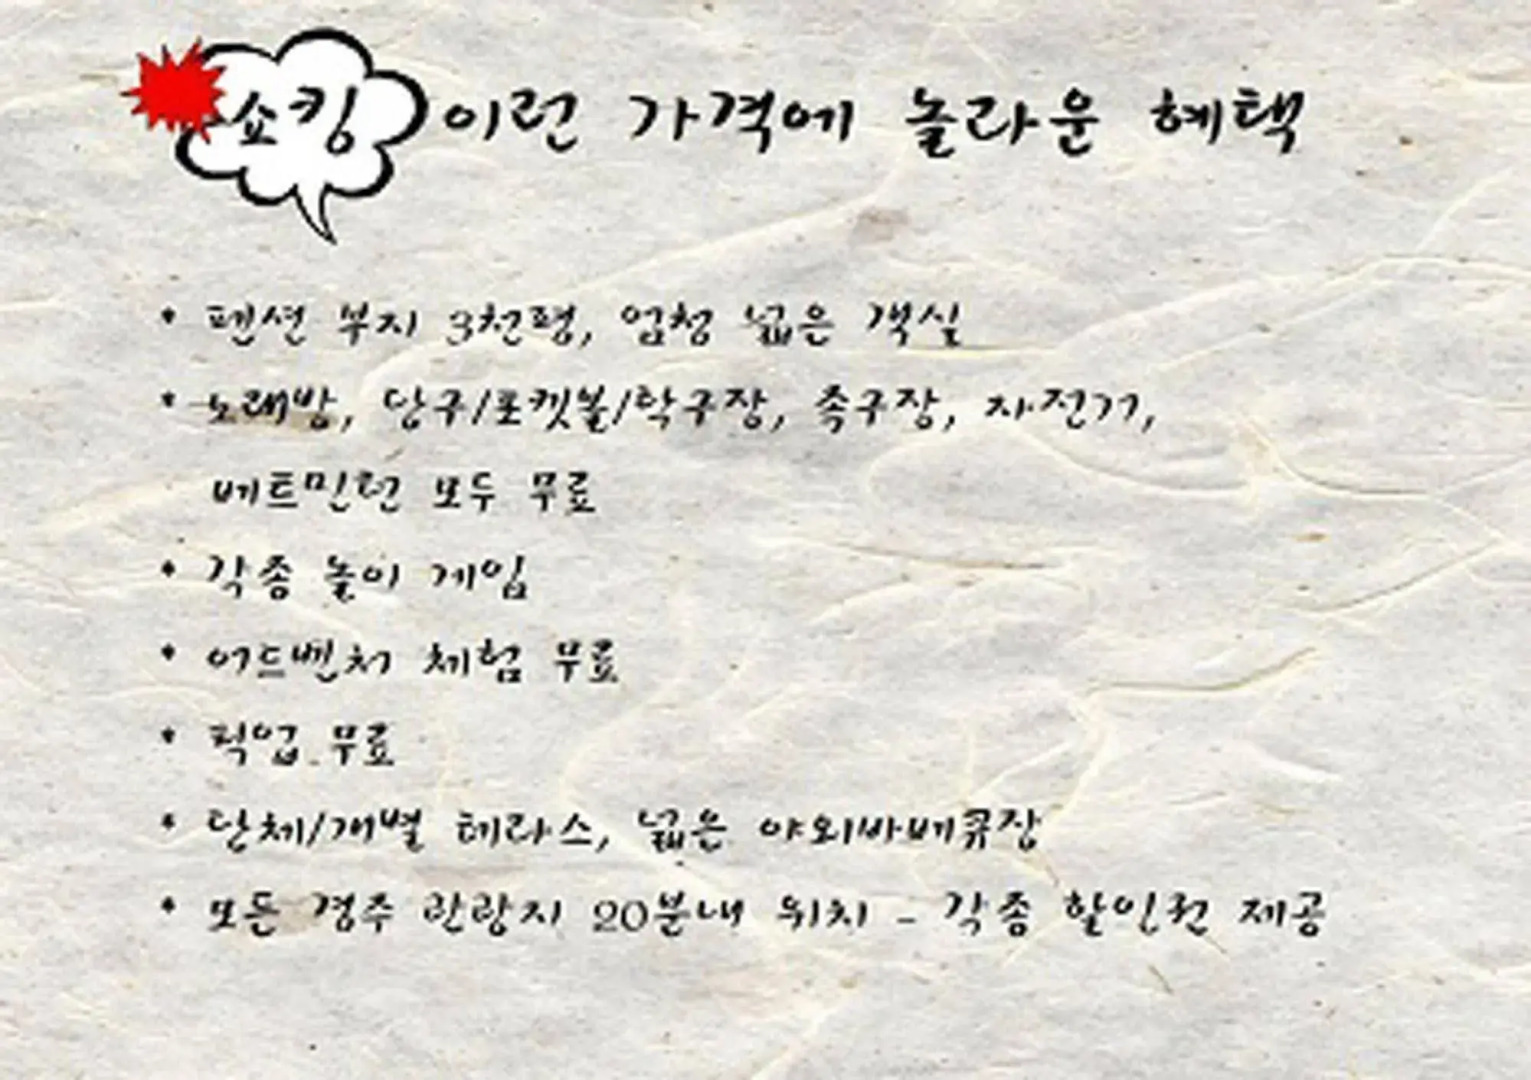 쇼킹 이런 가격에 놀라운 혜택
• 펜션 부지 3천평, 엄청 넓은 객실
• 노래방, 당구/포켓볼/탁구장, 족구장, 자전거,
베트민턴 모두 무료
• 각종 놀이 게임
• 어드벤처 체험 무료
• 픽업 무료
• 단체/개별 테라스, 넓은 야외바베큐장
• 모든 경주 관광지 20분내 위치 - 각종 할인권 제공